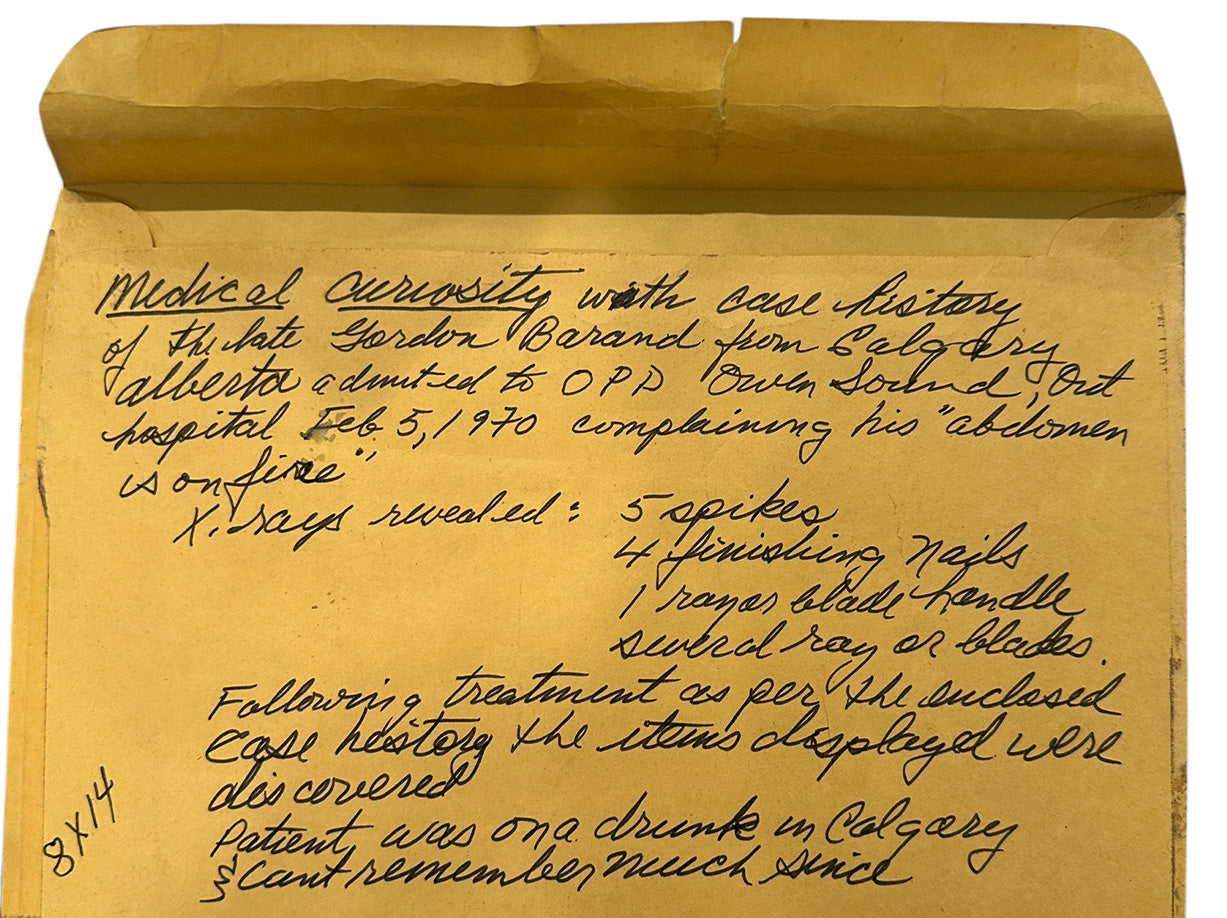 Medical Curiosity with case history
of the late Gordon Barand from Calgary
alberta admitted to OPD Owen Sound, Ont
hospital Feb. 5, 1970 complaining his "abdomen
is on fire".
X. rays revealed: 5 spikes
4 finishing nails
1 razor blade handle
several razor blades.
Following treatment as per the enclosed
case history the items displayed were
discovered
Patient, was on a drunk in Calgary
& cant remember much since
8X14